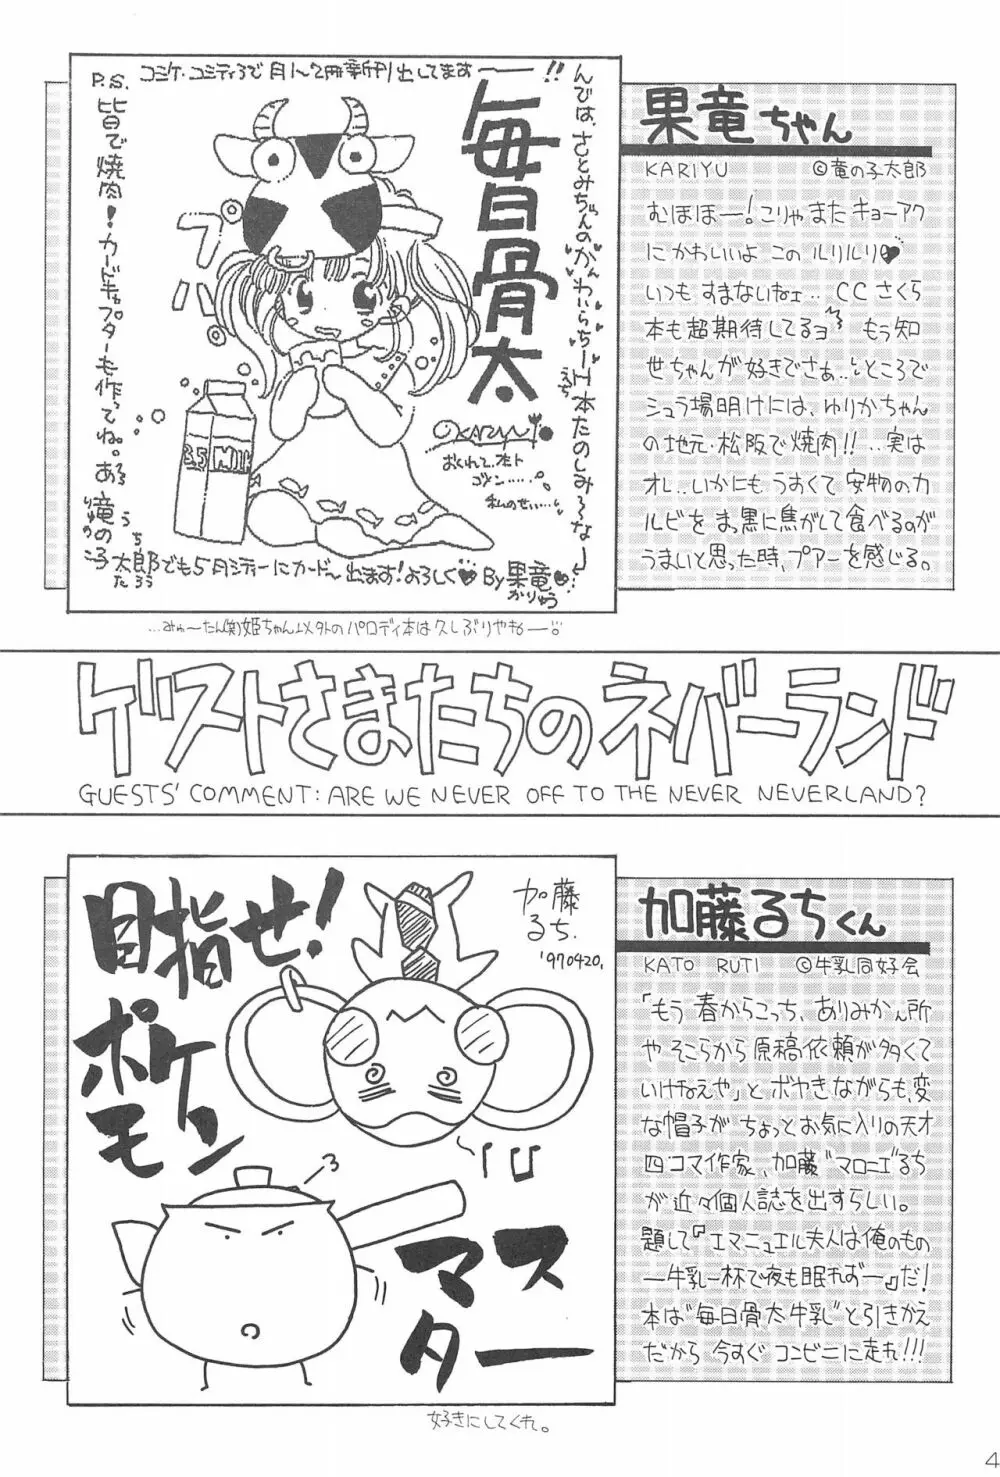 コミケ・コミティアで月1〜2冊新刊出してます――!!
毎日骨太
んでは、さとみちゃんのかわいらちーH本たのしみ〜な
えち
P.S.
皆で焼肉！カードキャプターも作ってね。
プハ
3.5 MILK
KARIYU
おくれて、ホント
ゴメン……
私のせい……
竜の子太郎でも5月シティーにカード〜出ます！よろしく♥By果竜♥
りゅう こ たろう
かりゅう
…みゅ〜たん(笑)姫ちゃん以外のパロディ本は久しぶりやも――。
果竜ちゃん
KARIYU ©竜の子太郎
むほほー！こりゃまたキョーアク
にかわいいよ このルリルリ♥
いつもすまないねェ‥ CCさくら
本も超期待してるヨ もう知
世ちゃんが好きでさぁ‥ところで
シュラ場明けには、ゆりかちゃん
の地元・松阪で焼肉!! ‥実は
オレ‥いかにもうすくて安物のカ
ルビをまっ黒に焦がして食べるのが
うまいと思った時、プアーを感じる。
ゲストさまたちのネバーランド
GUESTS' COMMENT: ARE WE NEVER OFF TO THE NEVER NEVERLAND?
目指せ！
ポケモン
マスター
加藤
るち.
'970420.
好きにしてくれ。
加藤るちくん
KATO RUTI ©牛乳同好会
「もう春からこっち、ありみかん所
やそこらから原稿依頼が多くて
いけねえや」とボヤきながらも変
な帽子がちょっとお気に入りの天才
四コマ作家、加藤"マロニエ"るち
が近々個人誌を出すらしい。
題して『エマニュエル夫人は俺のもの
―牛乳一杯で夜も眠れず―』だ！
本は"毎日骨太牛乳"と引きかえ
だから今すぐコンビニに走れ!!!
4